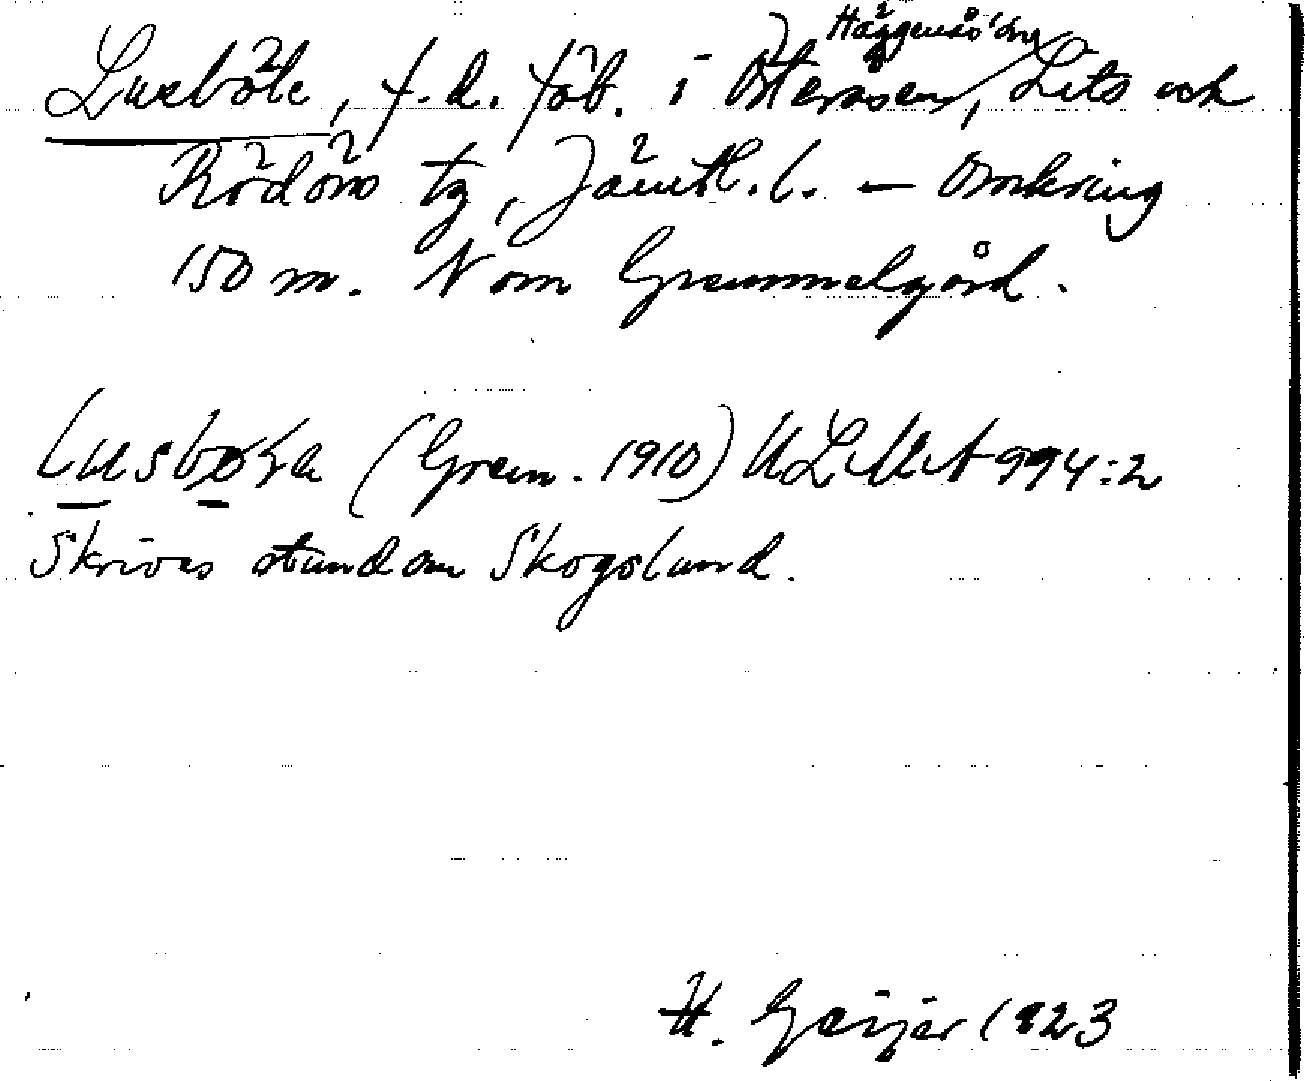 Häggenås sn
Lusböle, f.d. fäb. i Österåsen, Lits och
Rödöns tg, Jämtl. l. – Omkring
150 m. N om Gremmelgård.
(Grem. 1910) ULMA 994:2
Skrives stundom Skogslund.
H. Geijer 1923